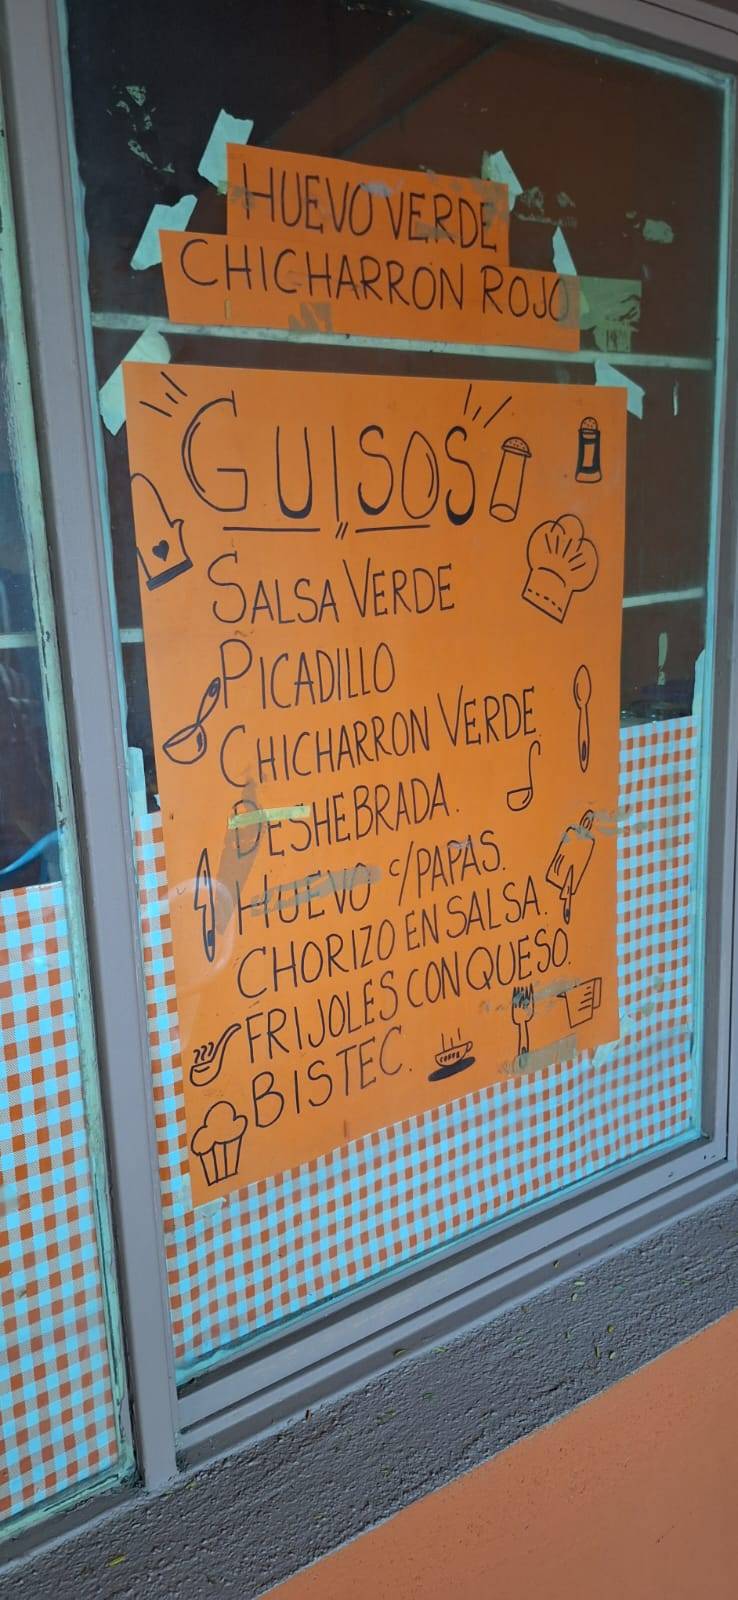 HUEVO VERDE
CHICHARRON ROJO
GUISOS
SALSA VERDE
PICADILLO
CHICHARRON VERDE.
DESHEBRADA.
HUEVO C/PAPAS.
CHORIZO EN SALSA.
FRIJOLES CON QUESO.
BISTEC.